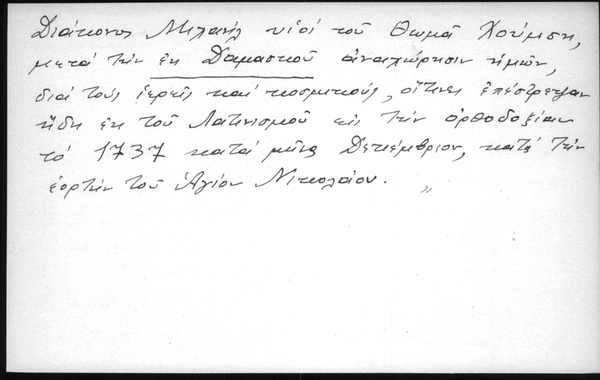 Διάκονος Μιχαήλ υἱός τοῦ Θωμᾶ Χούμση,
μετά τήν ἐκ Δαμασκοῦ ἀναχώρησιν ἡμῶν,
διά τούς ἱερεῖς καί κοσμικούς, οἵτινες ἐπέστρεψαν
ἤδη ἐκ τοῦ Λατινισμοῦ εἰς τήν ὀρθοδοξίαν
τό 1737 κατά μῆνα Δεκέμβριον, κατά τήν
ἑορτήν τοῦ Ἁγίου Νικολάου. "